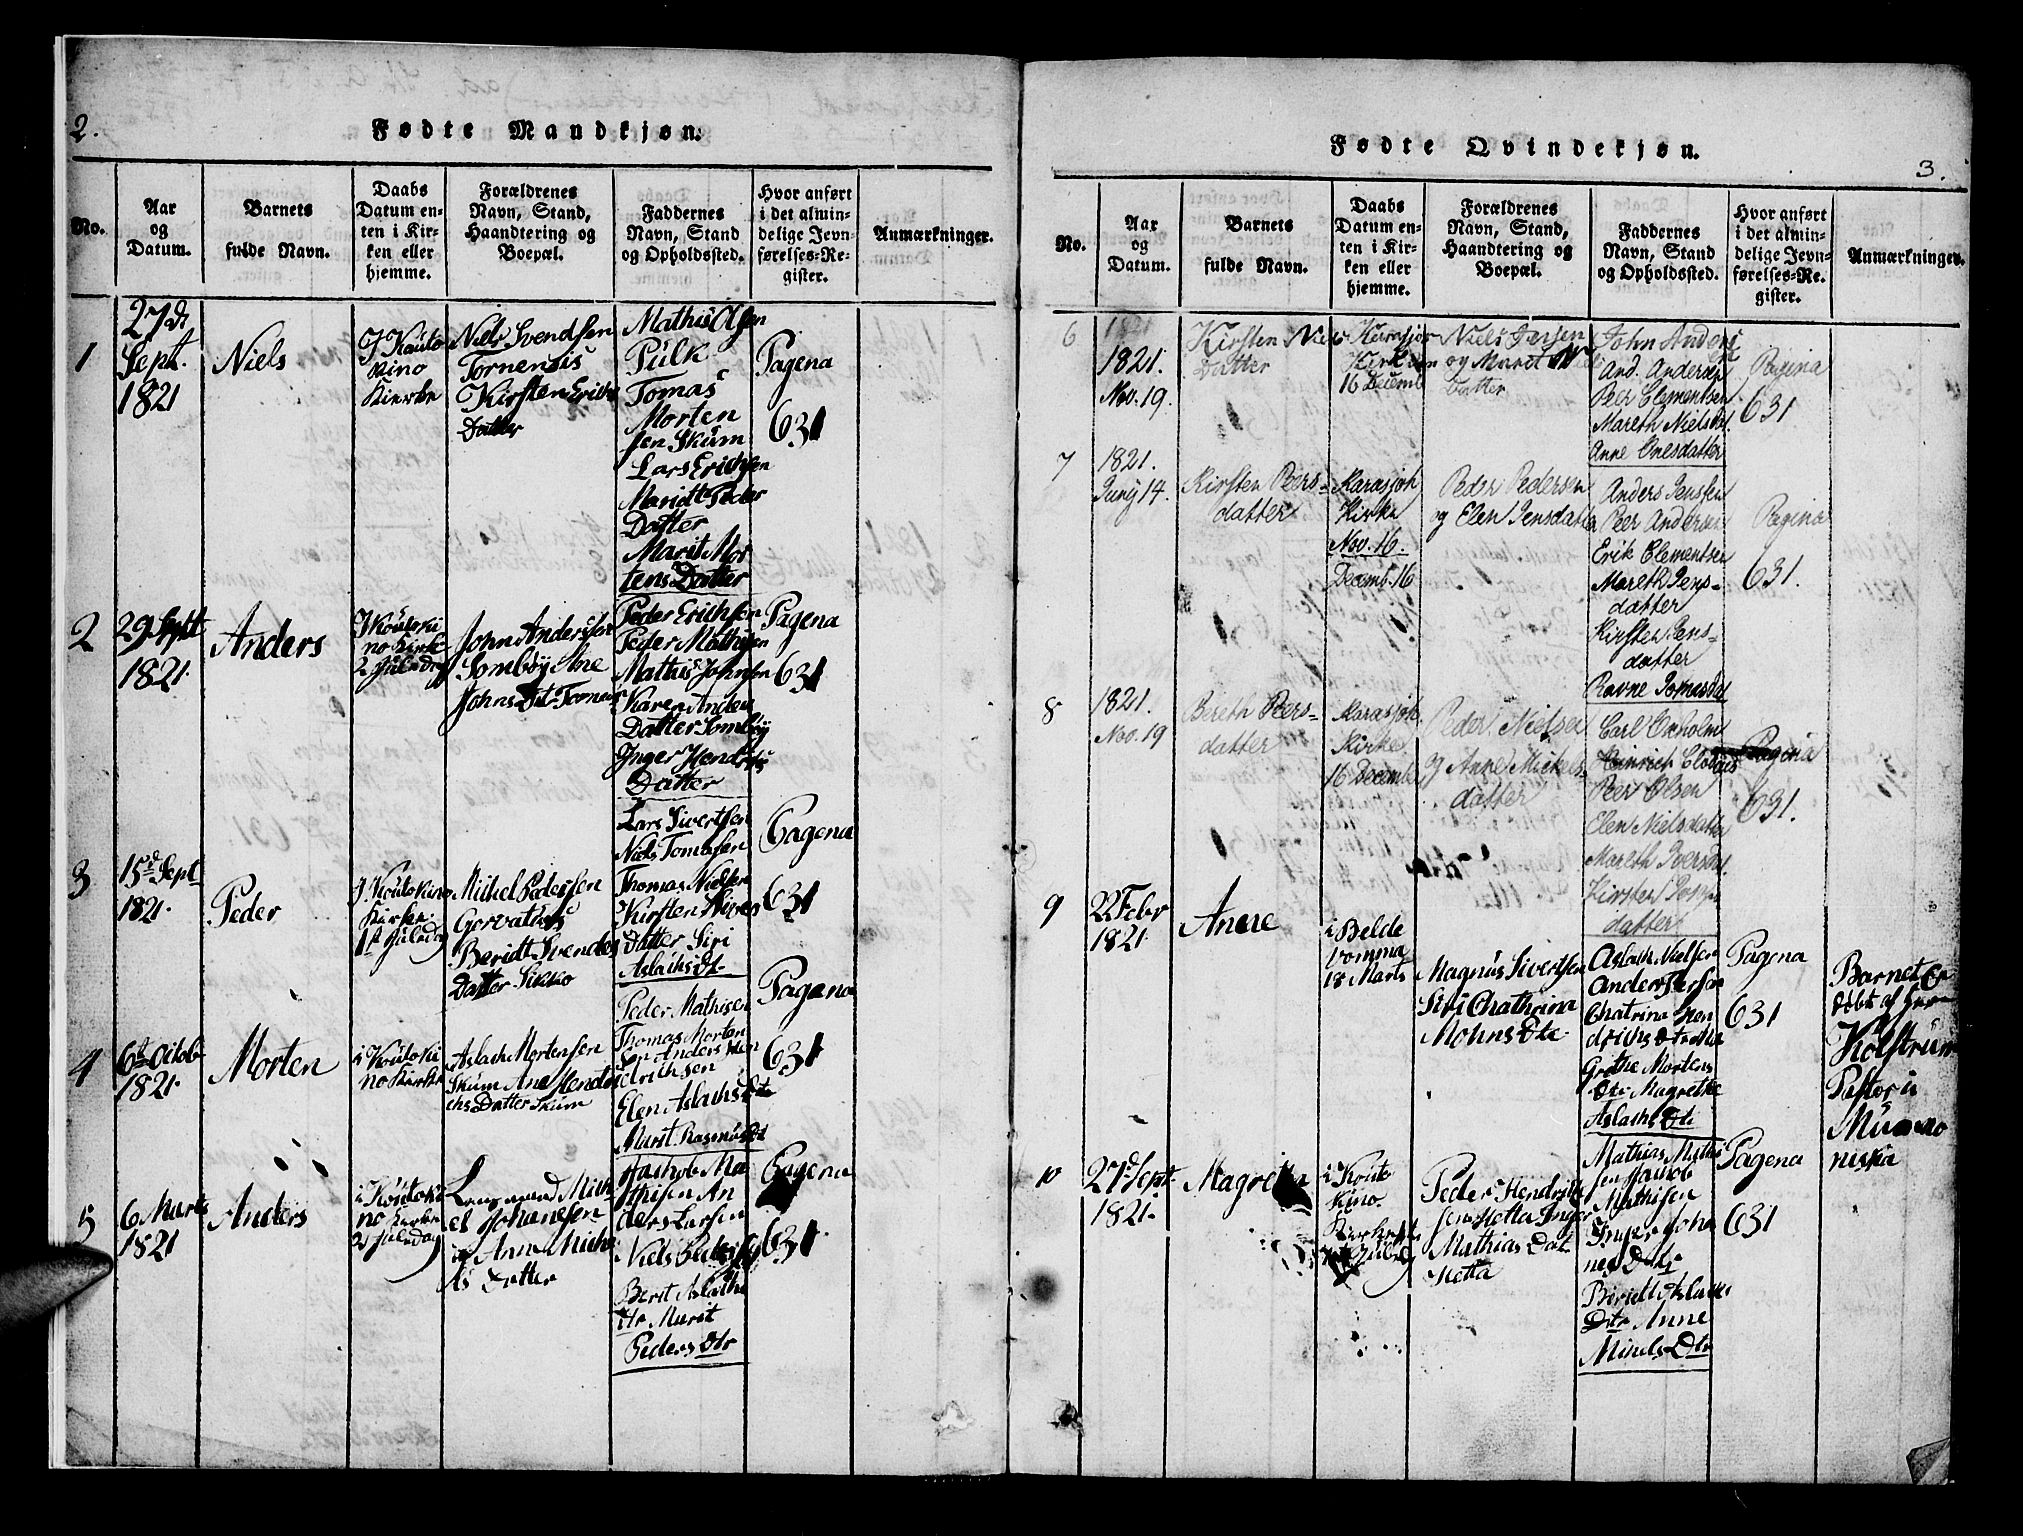 2.
Fødte Mandkjøn.
No.
Aar
og
Datum.
Barnets
fulde Navn.
Daabs
Datum en-
ten i Kir-
ken eller
hjemme.
Forældrenes
Navn, Stand,
Haandtering og
Boepæl.
Faddernes
Navn, Stand
og Opholdssted.
Hvor anført
i det almin-
delige Jevn-
førelses-Re-
gister.
Anmærkninger.
1
27de
Sept.
1821
Niels
J Kouto
kino
Kierke
Niels Svendsen
Tornensis
Kirsten Erichs
Datter
Mathis Olsen
Pulk
Tomas
Morten
sen Skum
Lars Erichsen
Maridt Peder
Datter
Marit Mor
tens Datter
Pagena
631
2
29 Sept
1821
Anders
J Koutoki
no Kirke
2 Juledag
John Andersen
Somby Ane
Johns Dtr Tornens
Peder Erichsen
Peder Mathisen
Mathis Johnsen
Karen Anders
Datter Somby
Inger Hendriks
Datter
Pagena
631
3
15d Sept
1821.
Peder
J Koutokino
Kirke
1st Juledag
Michel Pedersen
Gorvatius
Beridt Svends
Datter Sikko
Lars Sivertsen
Niels Tomasen
Thomas Nielsen
Kirsten Niels
Datter Siri
Aslachs Dt
Pagena
631
4
6te Octob
1821.
Morten
i Koutoki
no Kierke
Aslach Mortensen
Skum Ane Hendri
chs Datter Skum
Peder Mathisen
Thomas Morten
sen Anders Hen
drichsen
Elen Aslachs Dtr
Marit Rasmus Dt
Pagena
631
5
6 Marts
1821
Anders
i Koutoki
no Kirke
2 Juledag
Michael Johanesen
Anne Miche
ls Datter
Jachob Ma
thisen An
ders Larsen
Niels Pedersen
Berit Aslachs
Dtr Marit
Peders Dtr
Pagena
631
Fødte Qvindekjøn.
3.
No.
Aar
og
Datum.
Barnets
fulde Navn.
Daabs
Datum en-
ten i Kir-
ken eller
hjemme.
Forældrenes
Navn, Stand,
Haandtering og
Boepæl.
Faddernes
Navn, Stand
og Opholdssted.
Hvor anført
i det almin-
delige Jevn-
førelses-Re-
gister.
Anmærkninger.
6
1821.
Nov. 19.
Kirsten Niels
Datter
Karasjok
Kirke
16 Decemb
Niels Jensen
og Maret
Datter
John Anders
And. Andersen
Peer Clementsen
Mareth Nielsdat.
Anne Onesdatter
Pagina
631
7
1821.
Juny 14.
Kirsten Peers-
datter
Karasjok
Kirke
Nov. 16.
Decemb. 16
Peder Pedersen
og Elen Jensdatter
Anders Jenssen
Peer Andersen
Erik Clementsen
Mareth Jens-
datter
Kirsten Jens-
datter
Ravne Tomasdat
Pagina
631.
8
1821.
Nov. 19
Bereth Peers-
datter
Karasjok
Kirke
16 Decembr
Peder Nielsen
og Anne Michels-
datter
Carl Oxholm
Heinrich
Peer Olsen
Elen Nielsdatter
Mareth Iversdat.
Kirsten
datter
Pagina
631.
9
22 Febr
1821.
Anne
i Belde
vomma
18 Marts
Magnus Sivertsen
Siri Chathrina
Mohns Dtr
Aslach Nielsen
Anders Persen
Chatrina Hen
drichs Dtr
Grethe Mortens
Dtr Magrethe
Aslachs Dtr
Pagena
631
Barnet er
døbt af Herr
Kolstrum
Pastor i
Muono
niska
10
27d Sept
1821.
Magrethe
i Kouto
Kino
Peder Hendrik
sen Hetta Inger
Mathias Dat
Hetta
Mathias Mathi
sen Jacob
Mathisen
Inger Joha
nes Datr
Biridt Aslachs
Dtr Anne
Michels Dtr
Pagena
631